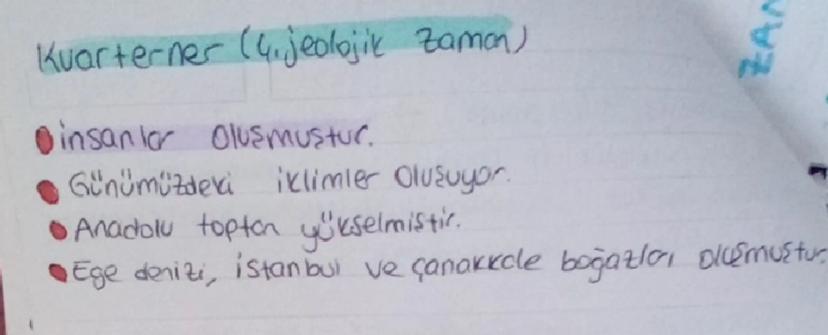 Kuarterner (4. jeolojik zaman)
insanlar oluşmuştur.
Günümüzdeki iklimler oluşuyor.
Anadolu toptan yükselmiştir.
Ege denizi, istanbul ve çanakkale boğazları oluşmuştur.
ZAM